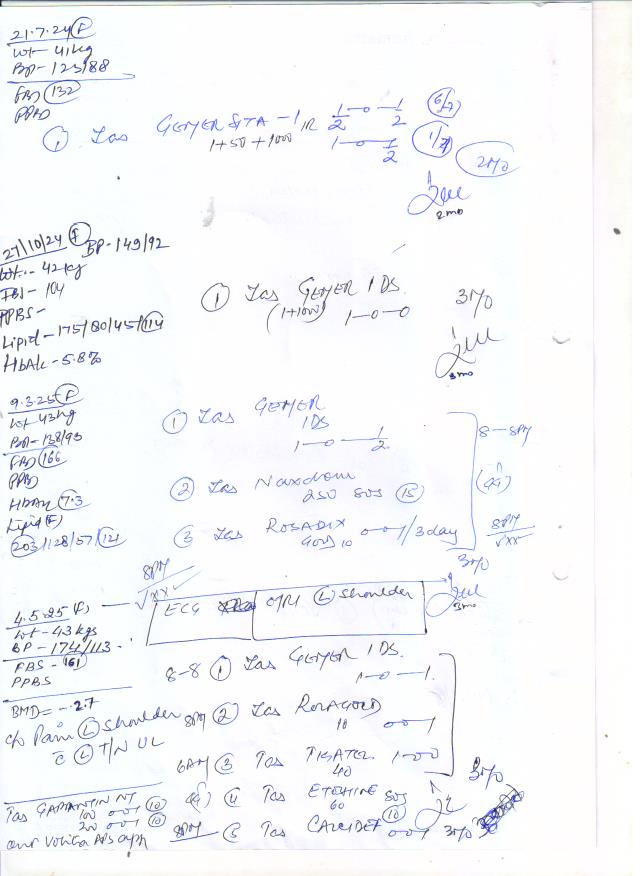 21.7.24 F
Wt - 41kg
BP - 123/88
FBS 132
PPBS
① Tab GEMER SITA - 1 IR 1/2 - 0 - 1/2 6/7
1+50+1000 1 - 0 - 1/2 1/7
2m/o
2mo
27/10/24 F BP - 149/92
Wt - 42kg
FBS - 104
PPBS -
Lipid - 175/80/45/114
HbA1c - 5.8%
① Tab GEMER 1 DS 3m/o
(1+1000) 1 - 0 - 0
3mo
9.3.25 F
Wt 43kg
BP - 138/93
FBS 166
PPBS
HbA1c 7.3
Lipid (F)
203/128/57/121
① Tab GEMER
1DS
1 - 0 - 1/2
8 - 8PM
② Tab Naxdom
250 SOS 15
③ Tab ROSADIX
GOLD 10 0-0-1/3day
8PM
√xx
3m/o
3mo
8PM
√xx
4.5.25 (F)
Wt - 43 kgs
BP - 174/113.
FBS - 161
PPBS
ECG
(L) shoulder
BMD = -2.7
c/o Pain (L) shoulder
c̄ (L) T/N UL
8-8 ① Tab GEMER 1 DS.
1 - 0 - 1.
8PM ② Tab ROZAGOLD
10 0-0-1
6AM ③ Tab
40 1-0-0
3m/o
④ Tab ETOSHINE SOS
60 10
8PM ⑤ Tab 0-0-1 3m/o
Tab GABANTIN NT
100 0-0-1 10
200 0-0-1 10